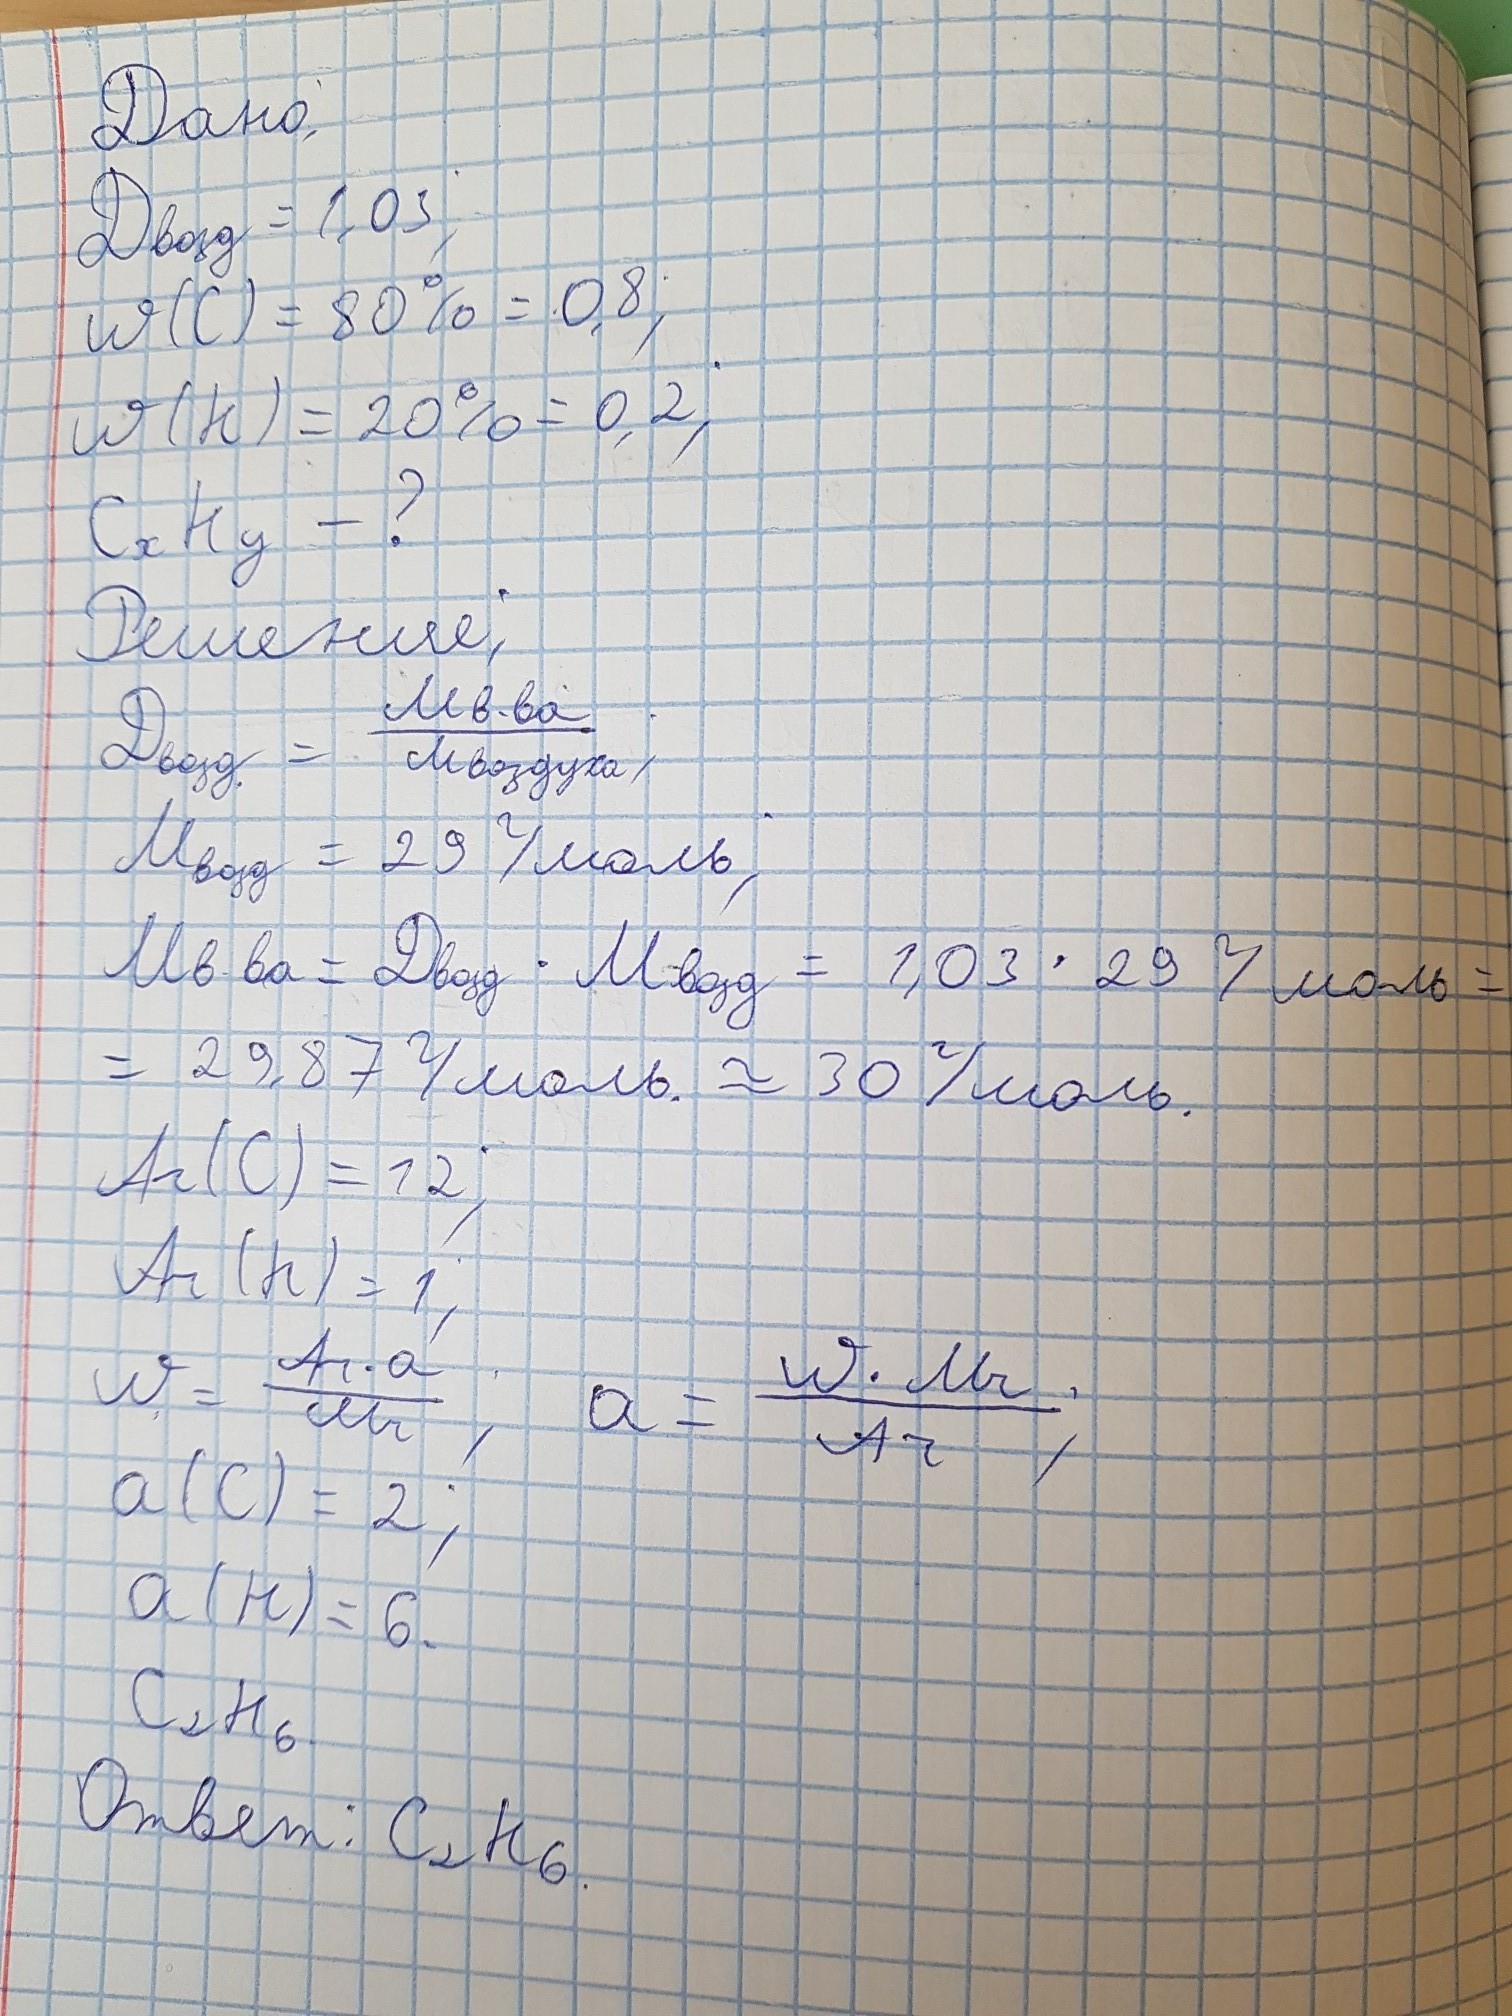 Дано;
Двозд = 1,03;
w(C) = 80% = 0,8;
w(H) = 20% = 0,2;
CxHy - ?
Решение;
Двозд. = Мв-ва / Мвоздуха;
Мвозд = 29 г/моль;
Мв-ва = Двозд · Мвозд = 1,03 · 29 г/моль =
= 29,87 г/моль. ≈ 30 г/моль.
Ar(C) = 12;
Ar(H) = 1;
w = Ar·a / Mr; a = w·Mr / Ar;
a(C) = 2;
a(H) = 6.
C₂H₆.
Ответ: C₂H₆.